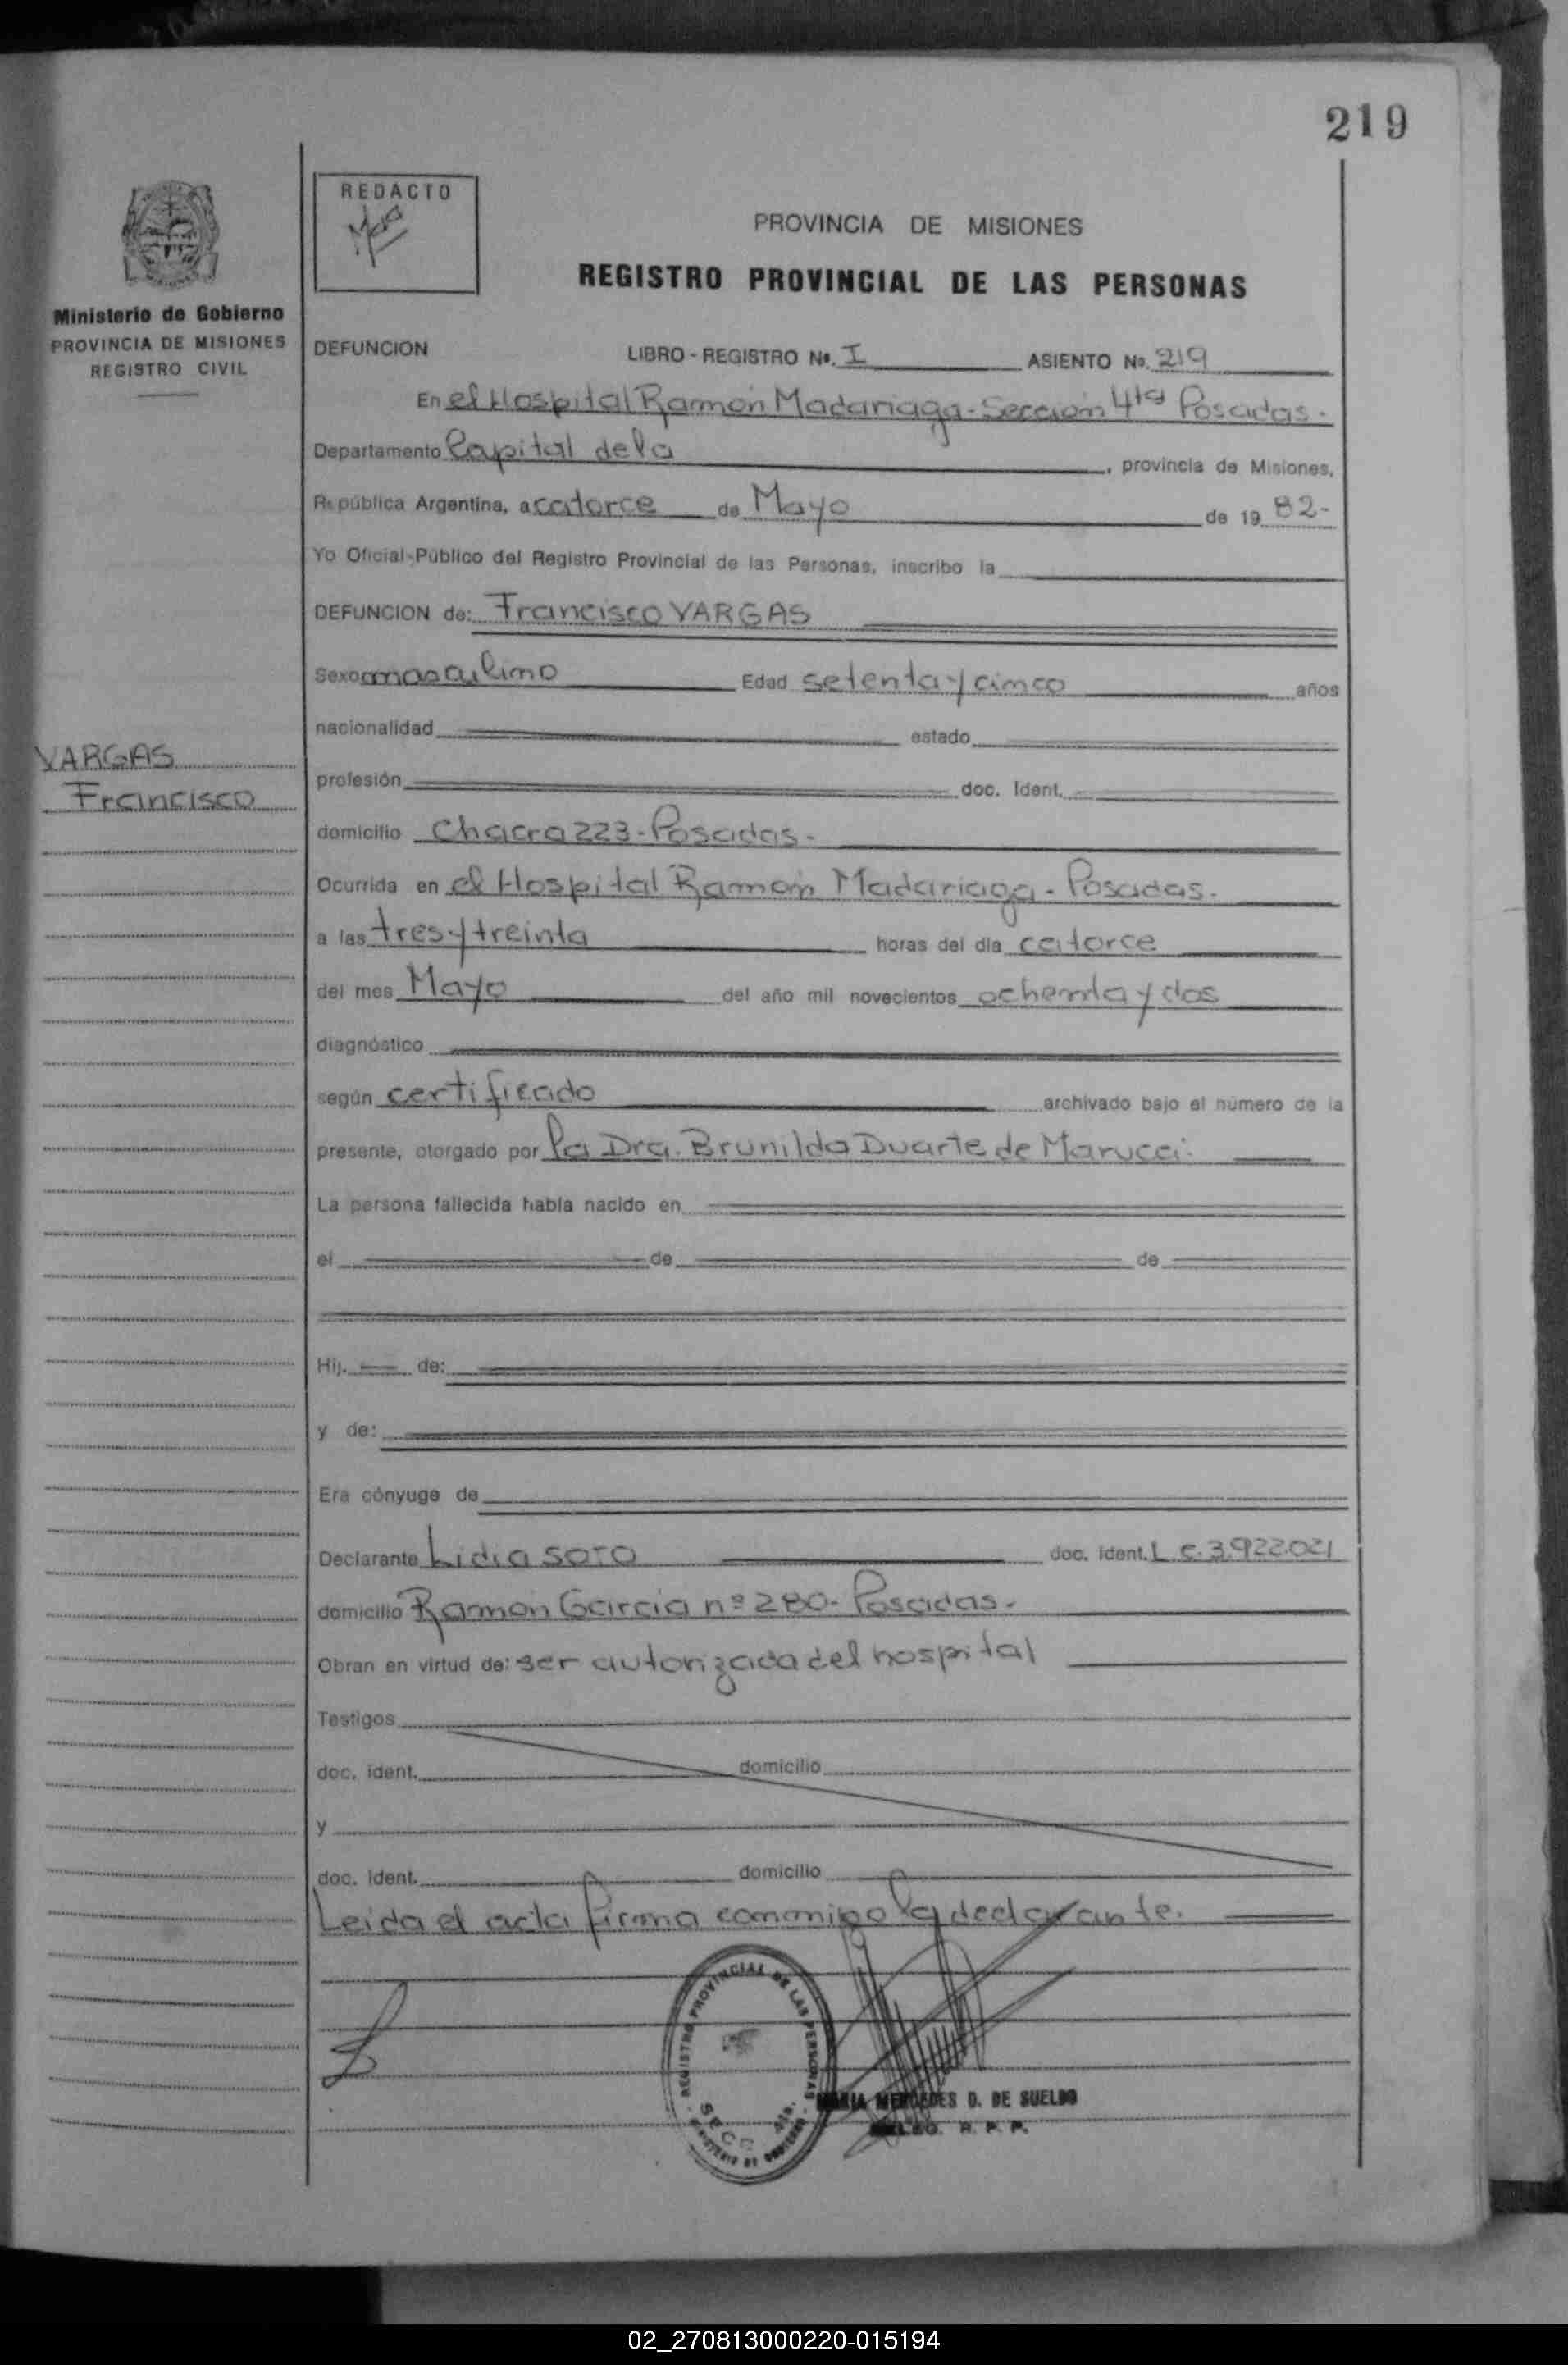 219
REDACTO
PROVINCIA DE MISIONES
REGISTRO PROVINCIAL DE LAS PERSONAS
Ministerio de Gobierno
PROVINCIA DE MISIONES
REGISTRO CIVIL
DEFUNCION LIBRO - REGISTRO Nº. I ASIENTO Nº. 219
En el Hospital Ramón Madariaga - Sección 4ta Posadas.
Departamento Capital de la , provincia de Misiones,
República Argentina, a catorce de Mayo de 19 82-
Yo Oficial Público del Registro Provincial de las Personas, inscribo la
DEFUNCION de: Francisco VARGAS
Sexo masculino Edad setenta y cinco años
nacionalidad estado
VARGAS
Francisco
profesión doc. Ident.
domicilio Chacra 223 - Posadas.
Ocurrida en el Hospital Ramón Madariaga - Posadas.
a las tres y treinta horas del día catorce
del mes Mayo del año mil novecientos ochenta y dos
diagnóstico
según certificado archivado bajo el número de la
presente, otorgado por la Dra. Brunilda Duarte de Marucci.
La persona fallecida había nacido en
el de de
Hij. de:
y de:
Era cónyuge de
Declarante Lidia SOTO doc. Ident. L.C. 3.922.021
domicilio Ramón García nº 280 - Posadas.
Obran en virtud de: ser autorizada del hospital
Testigos
doc. ident. domicilio
y
doc. ident. domicilio
Leida el acta firma conmigo la declarante.
REGISTRO PROVINCIAL DE LAS PERSONAS
SECC. 4ta.
MINISTERIO DE GOBIERNO
MARIA MERCEDES D. DE SUELDO
R. P. P.
02_270813000220-015194